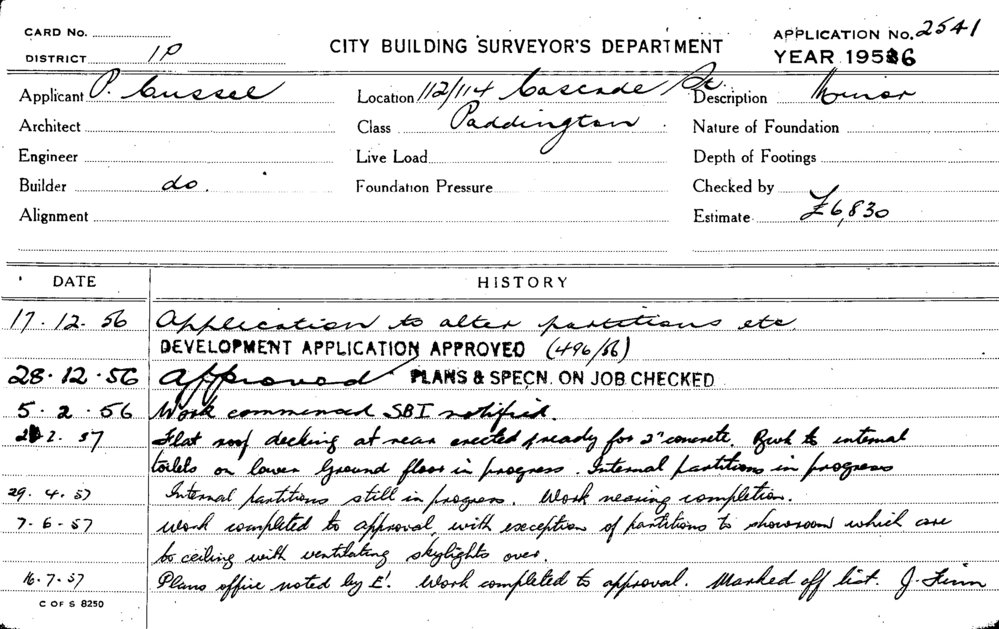 CARD No.
DISTRICT 1P
CITY BUILDING SURVEYOR'S DEPARTMENT
APPLICATION No. 2541
YEAR 1956
Applicant P. Cussel
Location 112/114 Cascade St.
Description Minor
Architect
Class Paddington
Nature of Foundation
Engineer
Live Load
Depth of Footings
Builder do.
Foundation Pressure
Checked by
Alignment
Estimate £6,830
DATE HISTORY
17.12.56 Application to alter partitions etc
DEVELOPMENT APPLICATION APPROVED (496/56)
28.12.56 Approved PLANS & SPECN. ON JOB CHECKED
5.2.56 Work commenced SBI notified.
2.57 Flat roof decking at rear erected & ready for 2" concrete. Bwk to internal
toilets on lower Ground floor in progress. Internal partitions in progress
29.4.57 Internal partitions still in progress. Work nearing completion.
7-6-57 Work completed to approval, with exception of partitions to showroom which are
to ceiling with ventilating skylights over.
16.7.57 Plans office noted by E'. Work completed to approval. Marked off list. J. Finn
C OF S 8250